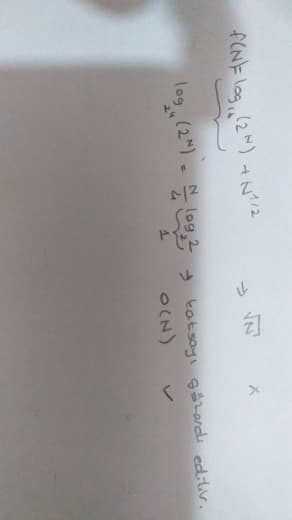 f(N) = log₁₆(2ᴺ) + N^1/2 → √N x
log₂4(2ᴺ) = N/4 log₂2 → katsayı göz ardı edilir.
1 O(N) ✓